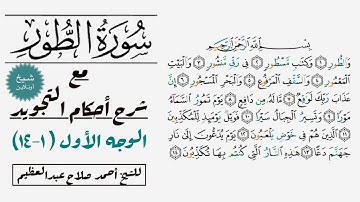 سورة الطور
مع
شرح أحكام التجويد
الوجه الأول (١-١٤)
للشيخ أحمد صلاح عبدالعظيم
شيخ
أونلاين
بِسْمِ اللَّهِ الرَّحْمَٰنِ الرَّحِيمِ
وَالطُّورِ ١ وَكِتَابٍ مَّسْطُورٍ ٢ فِي رَقٍّ مَّنشُورٍ ٣ وَالْبَيْتِ
الْمَعْمُورِ ٤ وَالسَّقْفِ الْمَرْفُوعِ ٥ وَالْبَحْرِ الْمَسْجُورِ ٦ إِنَّ
عَذَابَ رَبِّكَ لَوَاقِعٌ ٧ مَّا لَهُ مِن دَافِعٍ ٨ يَوْمَ تَمُورُ السَّمَاءُ
مَوْرًا ٩ وَتَسِيرُ الْجِبَالُ سَيْرًا ١٠ فَوَيْلٌ يَوْمَئِذٍ لِّلْمُكَذِّبِينَ
١١ الَّذِينَ هُمْ فِي خَوْضٍ يَلْعَبُونَ ١٢ يَوْمَ يُدَعُّونَ إِلَىٰ نَارِ
جَهَنَّمَ دَعًّا ١٣ هَٰذِهِ النَّارُ الَّتِي كُنتُم بِهَا تُكَذِّبُونَ ١٤